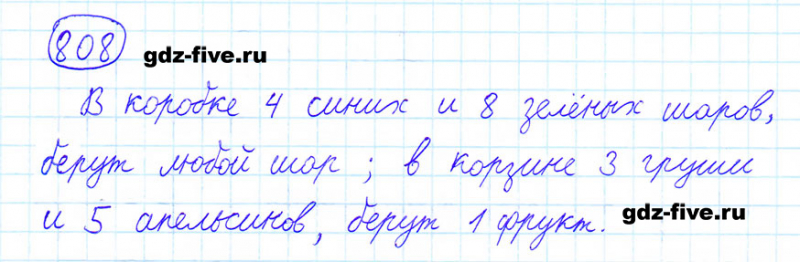 808
gdz-five.ru
В коробке 4 синих и 8 зелёных шаров,
берут любой шар; в корзине 3 груши
и 5 апельсинов, берут 1 фрукт.
gdz-five.ru